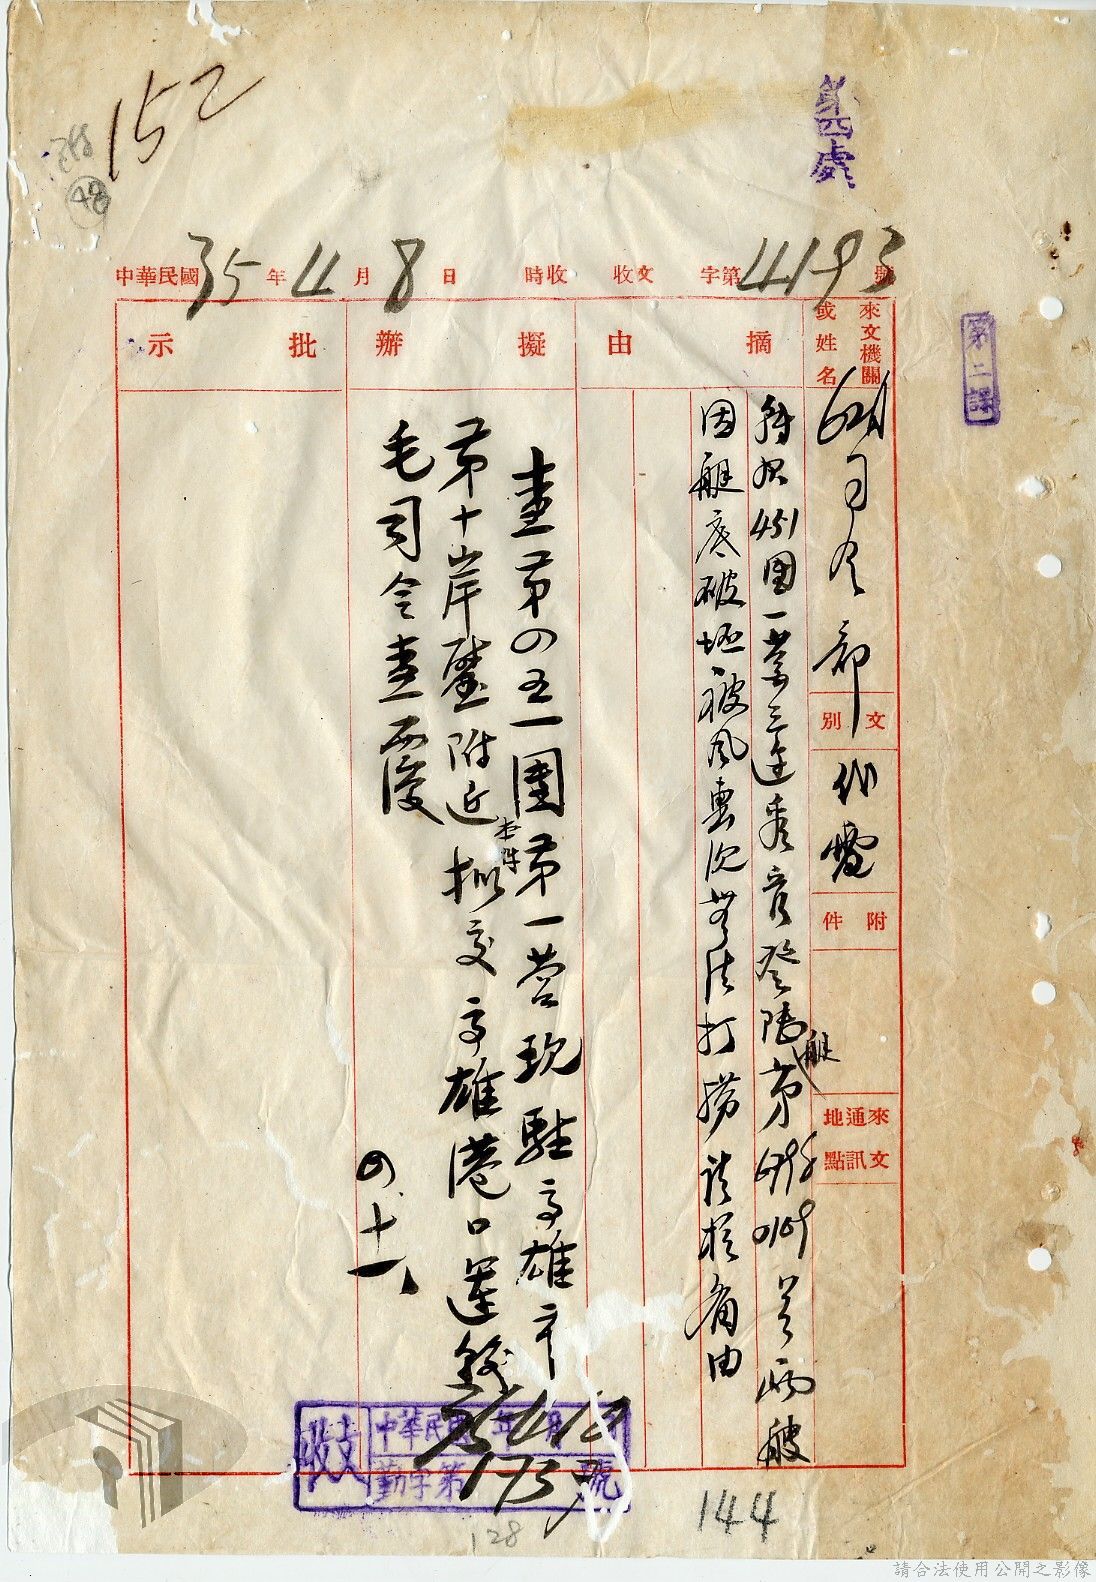 152
48
第四處
第二課
中華民國35年4月8日 時收 收文 字第4193號
來文機關或姓名
摘由
擬辦
批示
司令部
文別
代電
附件
來文通訊地點
451團一營三連
登陸艇第
號兩艘
因艇底破壞被風
沉無法打撈請核備由
查第四五一團第一營現駐高雄市
第十岸壁附近本件擬交高雄港口運輸
毛司令查覆
四、十一
收文
中華民國35年4月12日
勤字第1737號
144
128
請合法使用公開之影像